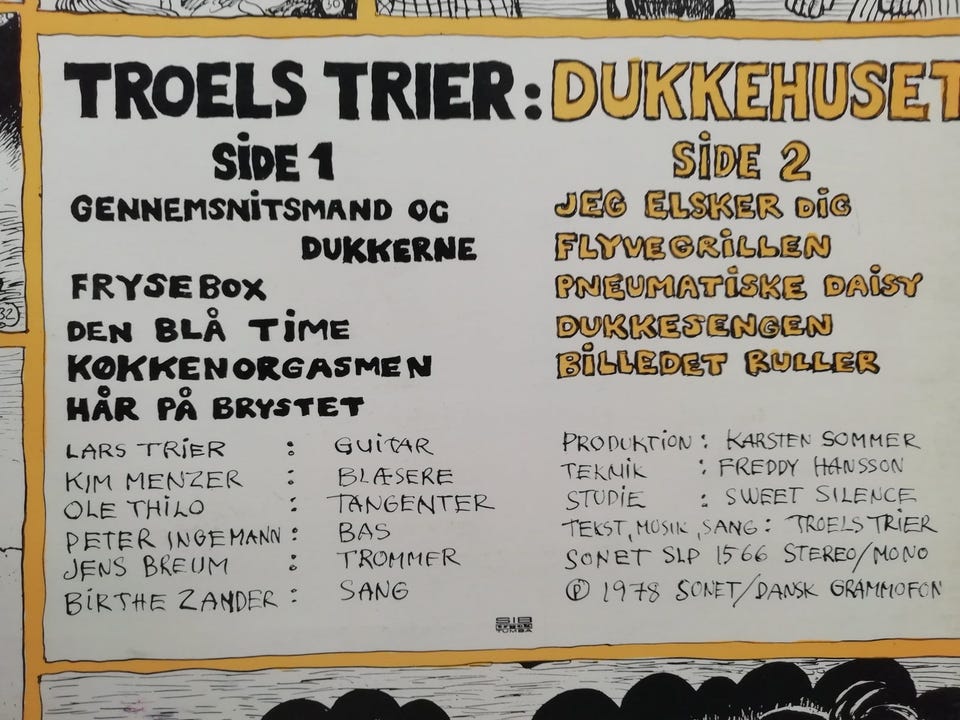 TROELS TRIER: DUKKEHUSET
SIDE 1
GENNEMSNITSMAND OG
DUKKERNE
FRYSEBOX
DEN BLÅ TIME
KØKKENORGASMEN
HÅR PÅ BRYSTET
SIDE 2
JEG ELSKER DIG
FLYVEGRILLEN
PNEUMATISKE DAISY
DUKKESENGEN
BILLEDET RULLER
LARS TRIER : GUITAR
KIM MENZER : BLÆSERE
OLE THILO : TANGENTER
PETER INGEMANN : BAS
JENS BREUM : TROMMER
BIRTHE ZANDER : SANG
PRODUKTION : KARSTEN SOMMER
TEKNIK : FREDDY HANSSON
STUDIE : SWEET SILENCE
TEKST, MUSIK, SANG : TROELS TRIER
SONET SLP 1566 STEREO/MONO
Ⓟ 1978 SONET/DANSK GRAMMOFON
SIB
TUMBA
30
32